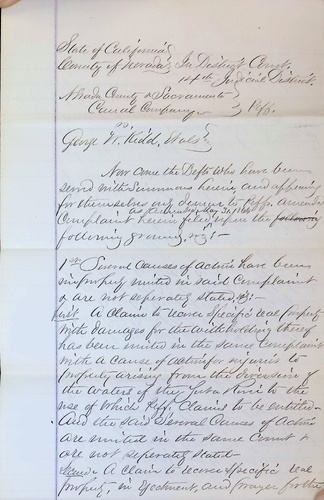 State of California }
County of Nevada } In District Court,
14th Judicial District.
Nevada County & Sacramento }
Canal Company } Plffs.
vs
George W. Kidd, et als }
Now come the Defts who have been
served with Summons herein, and appearing
for themselves only demur to Plffs. amended
as amended May 31, 18
Complaint herein filed upon the following
following grounds, viz:-
1st Several Causes of action have been
improperly united in said Complaint
& are not seperately stated, viz:-
first. A Claim to recover specific real property
with damages for the withholding thereof
has been united in the same Complaint
with a cause of action for injuries to
property arising from the diversion of
the waters of the Yuba River to the
use of which Plffs. Claims to be entitled-
And the said Several Causes of action
are united in the same Count &
are not seperately stated-
Second- A Claim to recover specific real
property, in Ejectment, and prayer for the